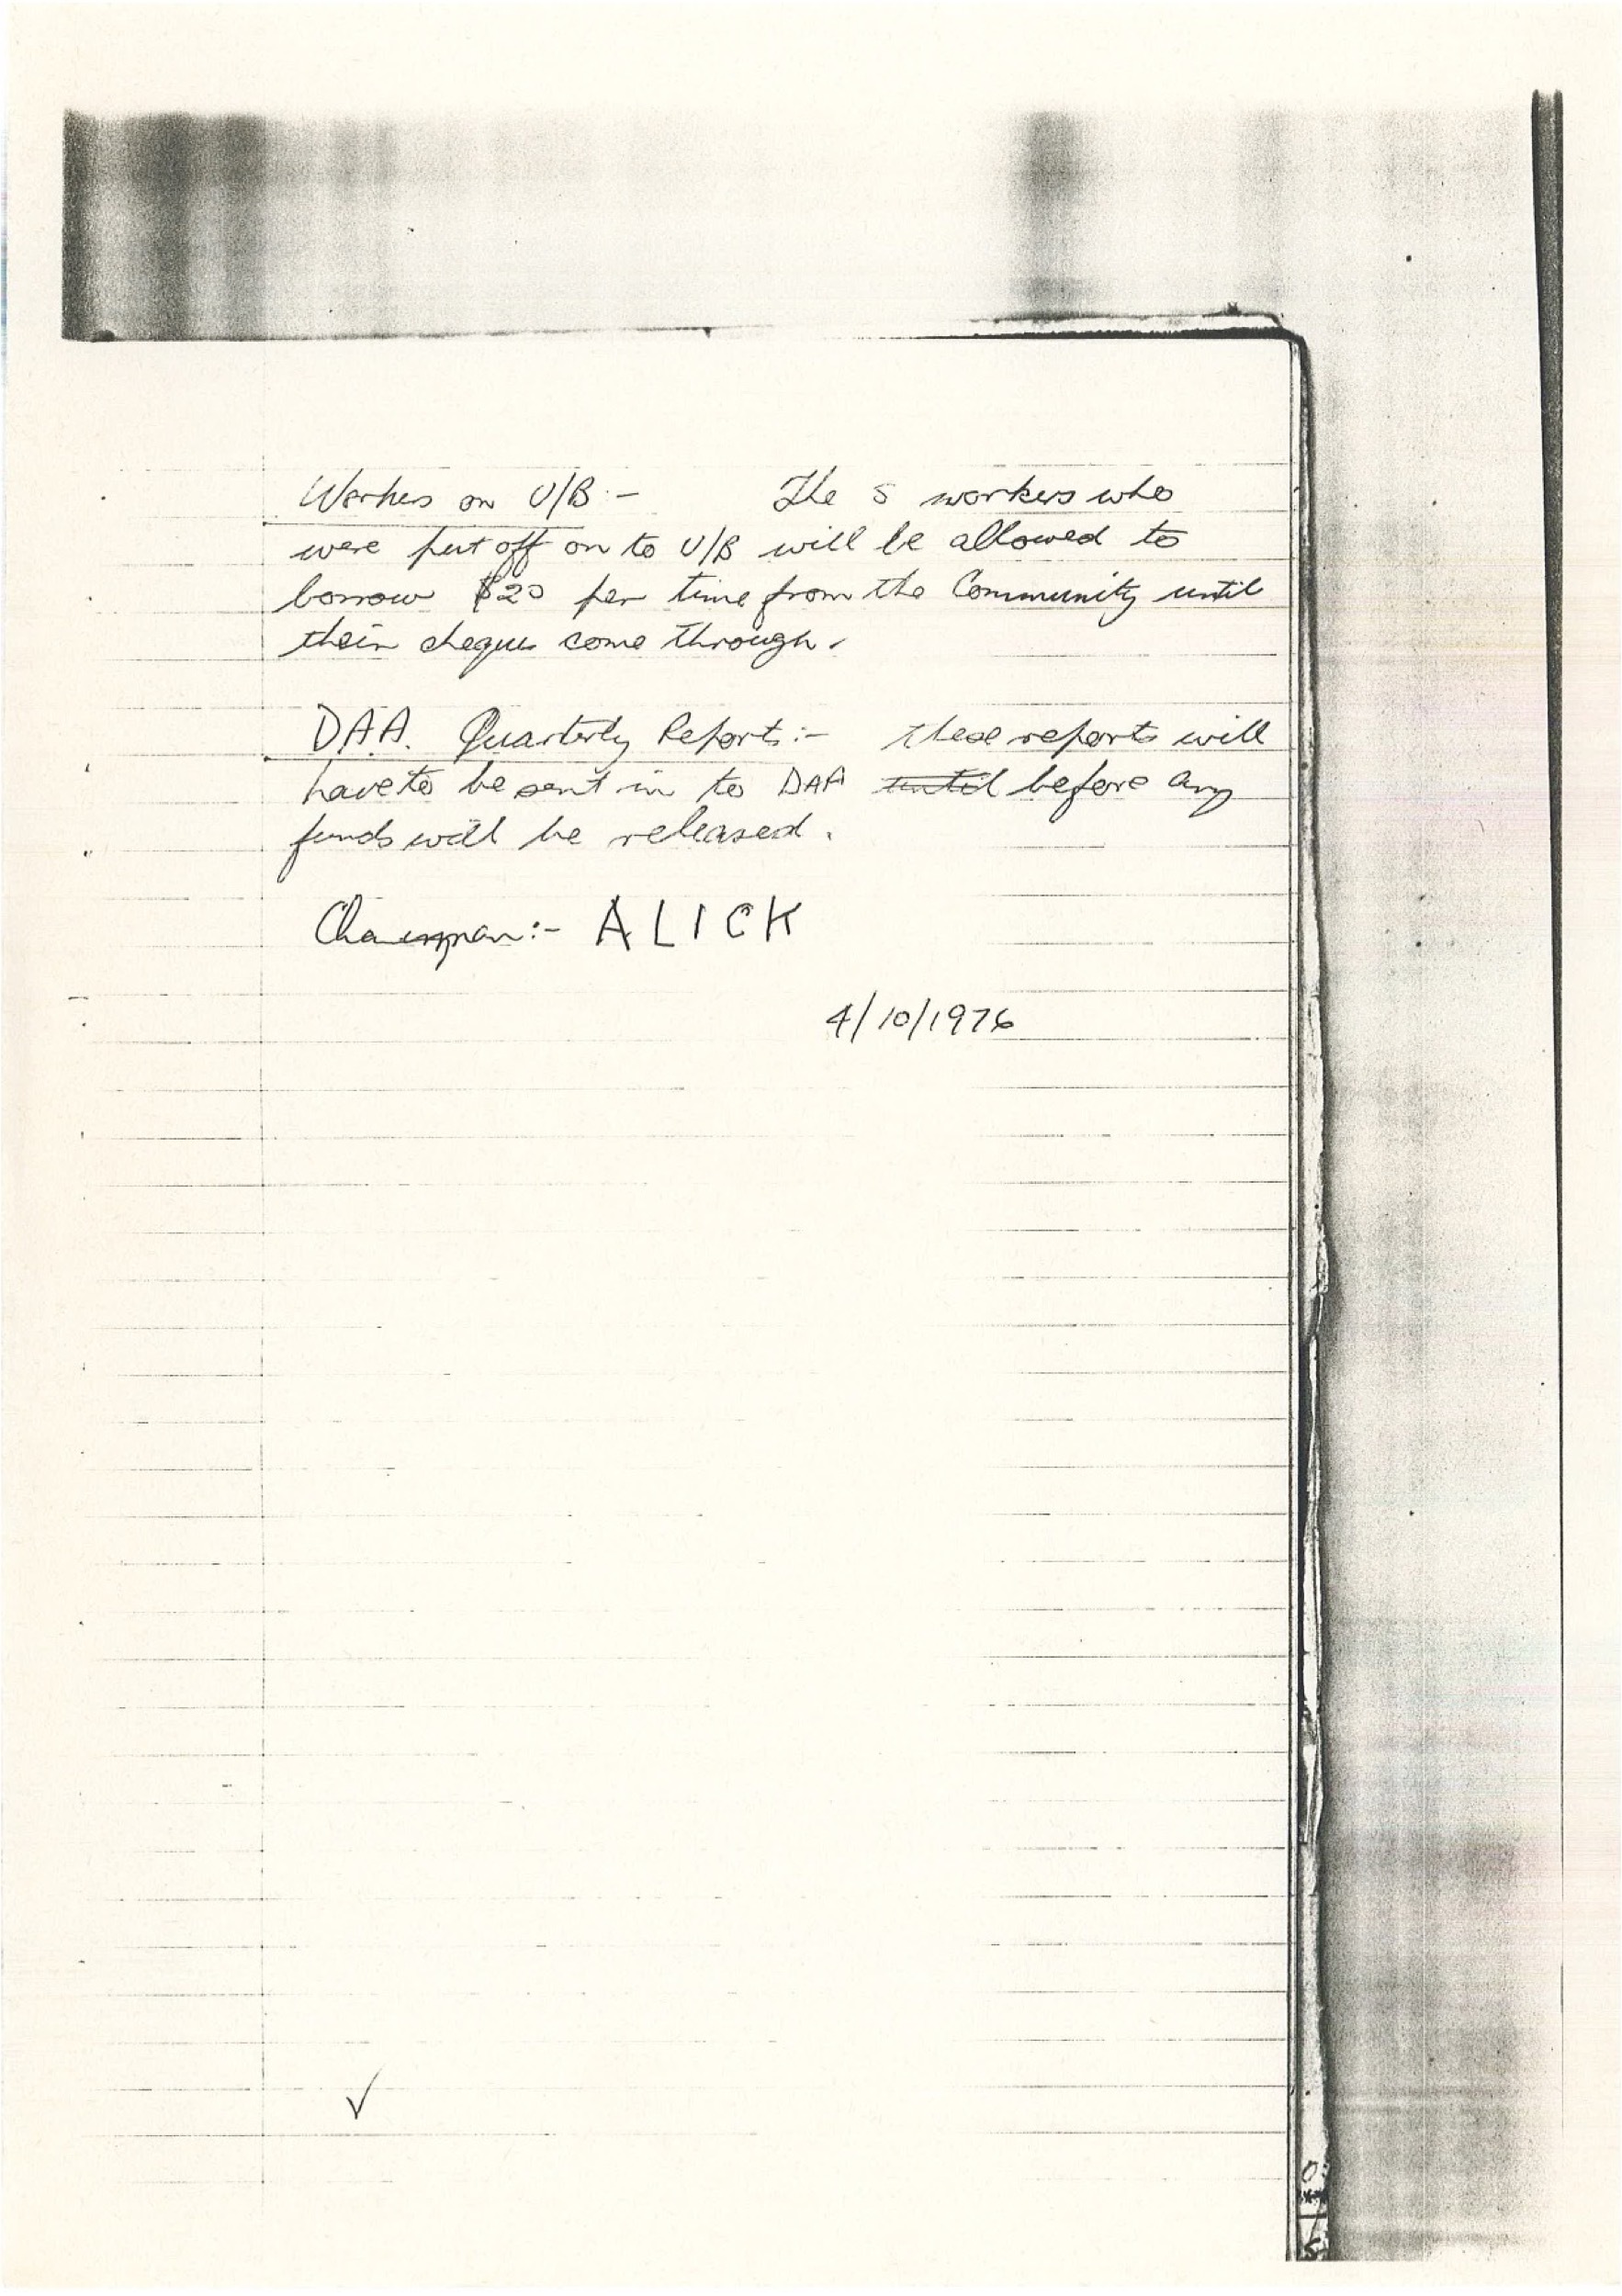 Workers on U/B :- The 5 workers who
were put off on to U/B will be allowed to
borrow $20 per time from the Community until
their cheques come through.
DAA. Quarterly Reports:- these reports will
have to be sent in to DAA until before any
funds will be released.
Chairman:- ALICK
4/10/1976